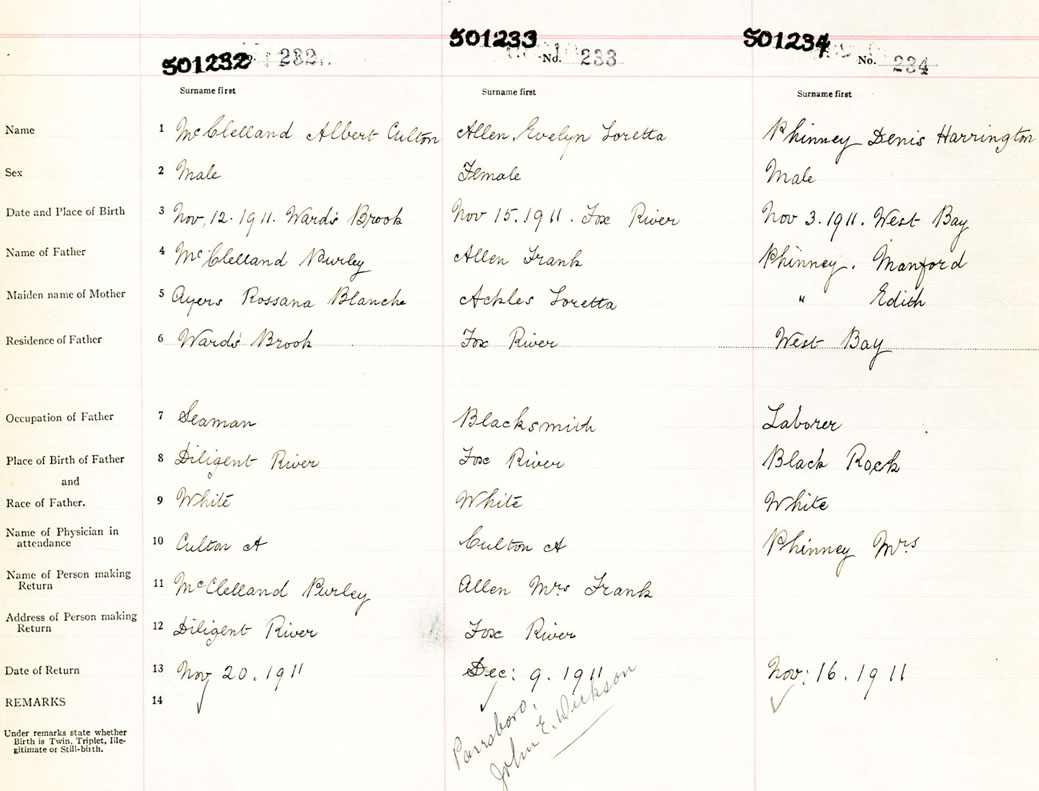 501232 232 501233 No. 233 501234 No. 234
Surname first Surname first Surname first
Name 1 McClelland Albert Culton Allen, Evelyn Loretta Phinney Denis Harrington
Sex 2 Male Female Male
Date and Place of Birth 3 Nov, 12. 1911. Wards Brook Nov 15. 1911. Fox River Nov 3. 1911. West Bay
Name of Father 4 McClelland Purley Allen Frank Phinney. Manford
Maiden name of Mother 5 Ayers Rossana Blanche Ackles Loretta " Edith
Residence of Father 6 Wards Brook Fox River West Bay
Occupation of Father 7 Seaman Blacksmith Laborer
Place of Birth of Father 8 Diligent River Fox River Black Rock
and
Race of Father. 9 White White White
Name of Physician in
attendance 10 Culton A Culton A Phinney Mrs
Name of Person making
Return 11 McClelland Purley Allen Mrs Frank
Address of Person making
Return 12 Diligent River Fox River
Date of Return 13 Nov 20. 1911 Dec: 9. 1911 Nov: 16. 1911
REMARKS 14
Under remarks state whether
Birth is Twin, Triplet, Ille-
gitimate or Still-birth.
Parrsboro,
John E. Dickson